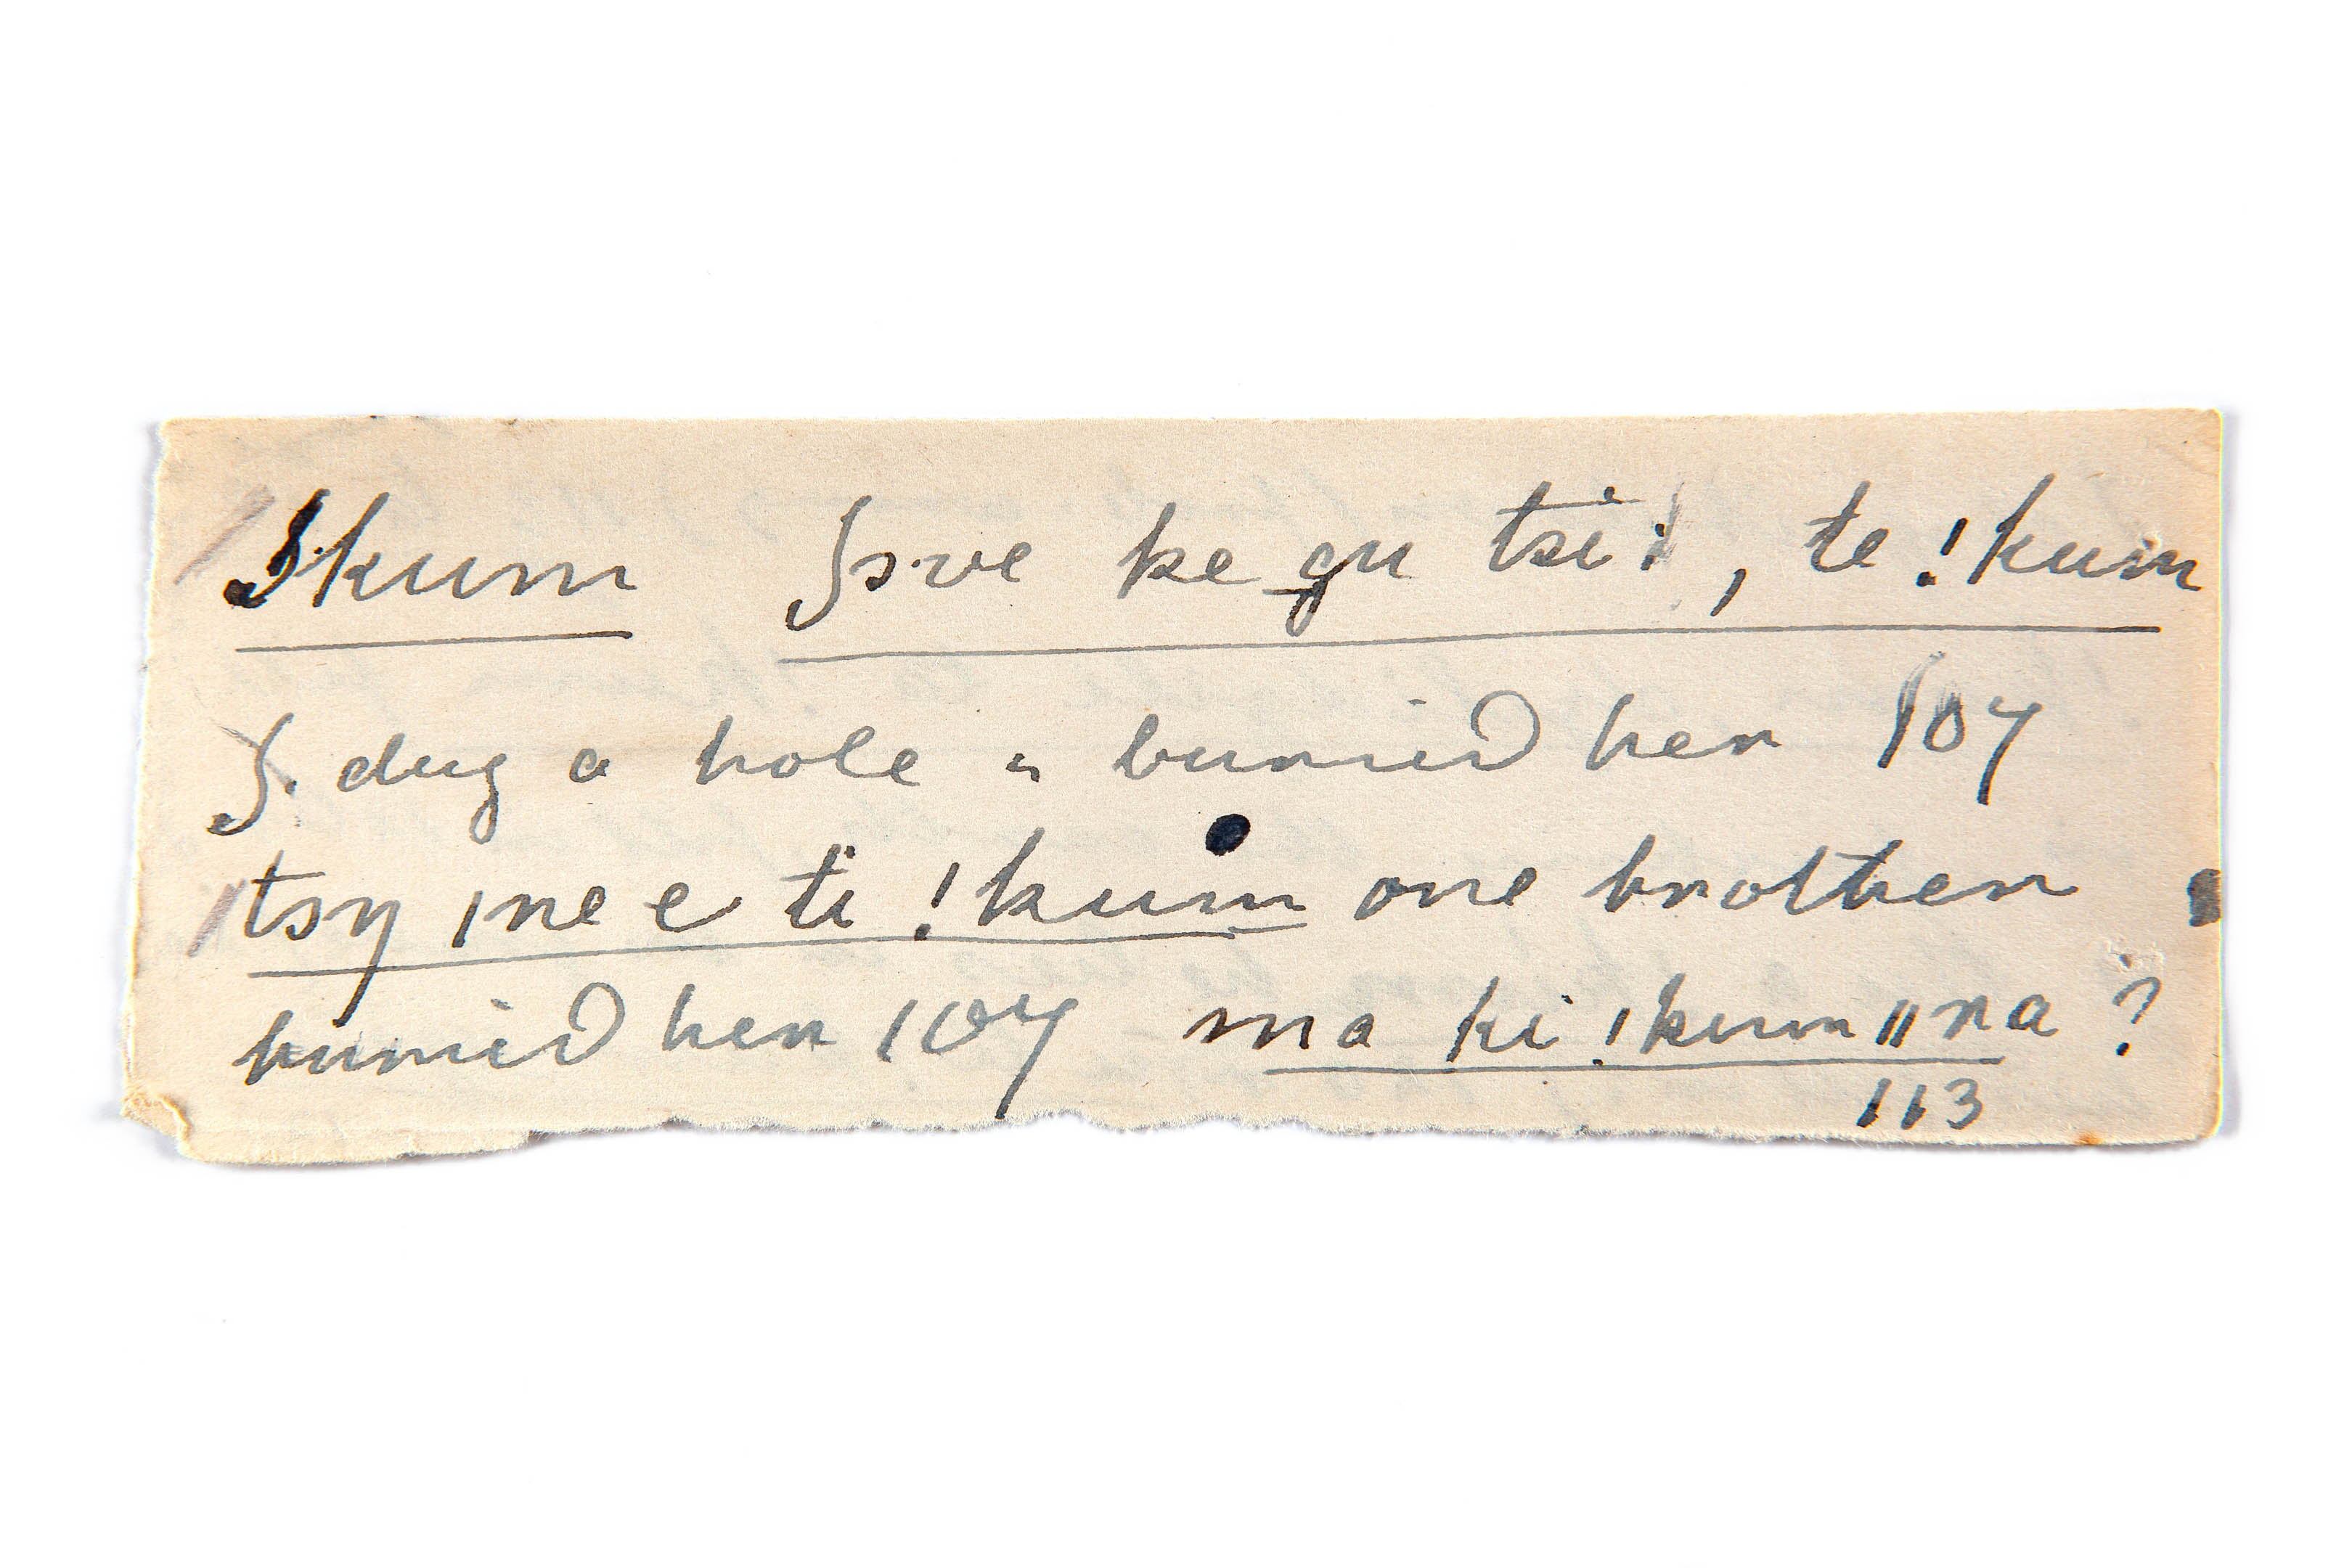 !kum Jsve ke gu tsi: , te !kum
J. dug a hole & buried her 104
tsy |ne e ti !kum one brother
buried her 104 ma ki !kum ǁna ?
113